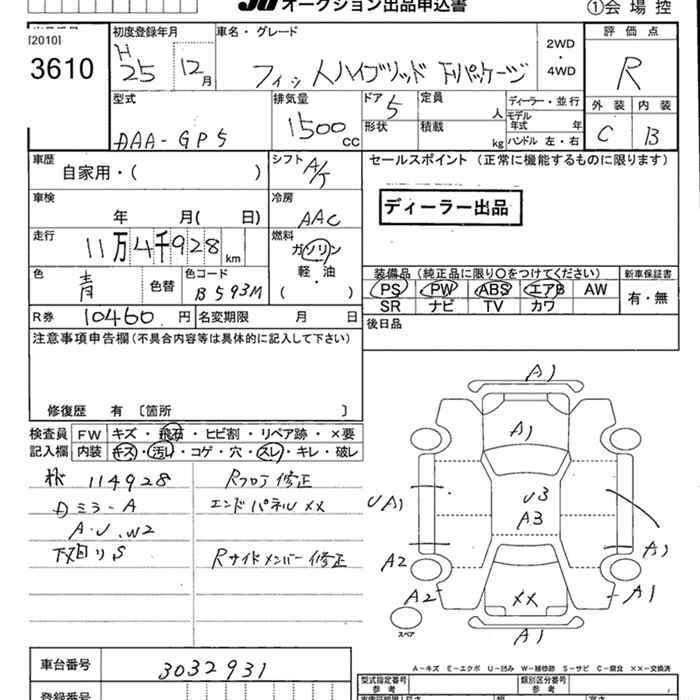 オークション出品申込書
①会場控
[2010]
3610
初度登録年月
H25 12月
車名・グレード
フィットハイブリッド Fパッケージ
2WD
・
4WD
評価点
R
外装 内装
C B
型式
DAA-GP5
排気量
1500cc
ドア
5
形状
定員
人
積載
kg
ディーラー・並行
モデル年式 年
ハンドル 左・右
車歴
自家用・( )
シフト
A/T
セールスポイント (正常に機能するものに限ります)
ディーラー出品
車検
年 月( 日)
冷房
AAC
走行
11万4千928km
燃料
ガソリン
軽・油
( )
色
青
色替
色コード
B593M
装備品(純正品に限り〇をつけてください)
PS PW ABS エアB AW
SR ナビ TV カワ
新車保証書
有・無
R券 10460円
名変期限 月 日
後日品
注意事項申告欄(不具合内容等は具体的に記入して下さい)
修復歴 有 〔箇所 〕
検査員
記入欄
FW キズ・飛石・ヒビ割・リペア跡・×要
内装 キズ・汚レ・コゲ・穴・スレ・キレ・破レ
114928
Dミラ-A
A.U.W2
下回りS
Rフロア修正
エンドパネルXX
Rサイドメンバー修正
A1
A1
U3
A3
UA1
A1
A2
A2
XX
A1
A1
スペア
A-キズ E-エクボ U-凹み W-補修跡 S-サビ C-腐食 XX-交換済
車台番号
3032931
登録番号
型式指定番号
参考
類別区分番号
参考